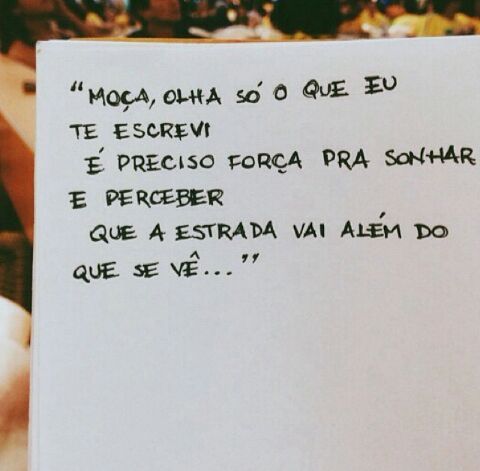 “MOÇA, OLHA SÓ O QUE EU
TE ESCREVI
É PRECISO FORÇA PRA SONHAR
E PERCEBER
QUE A ESTRADA VAI ALÉM DO
QUE SE VÊ...”